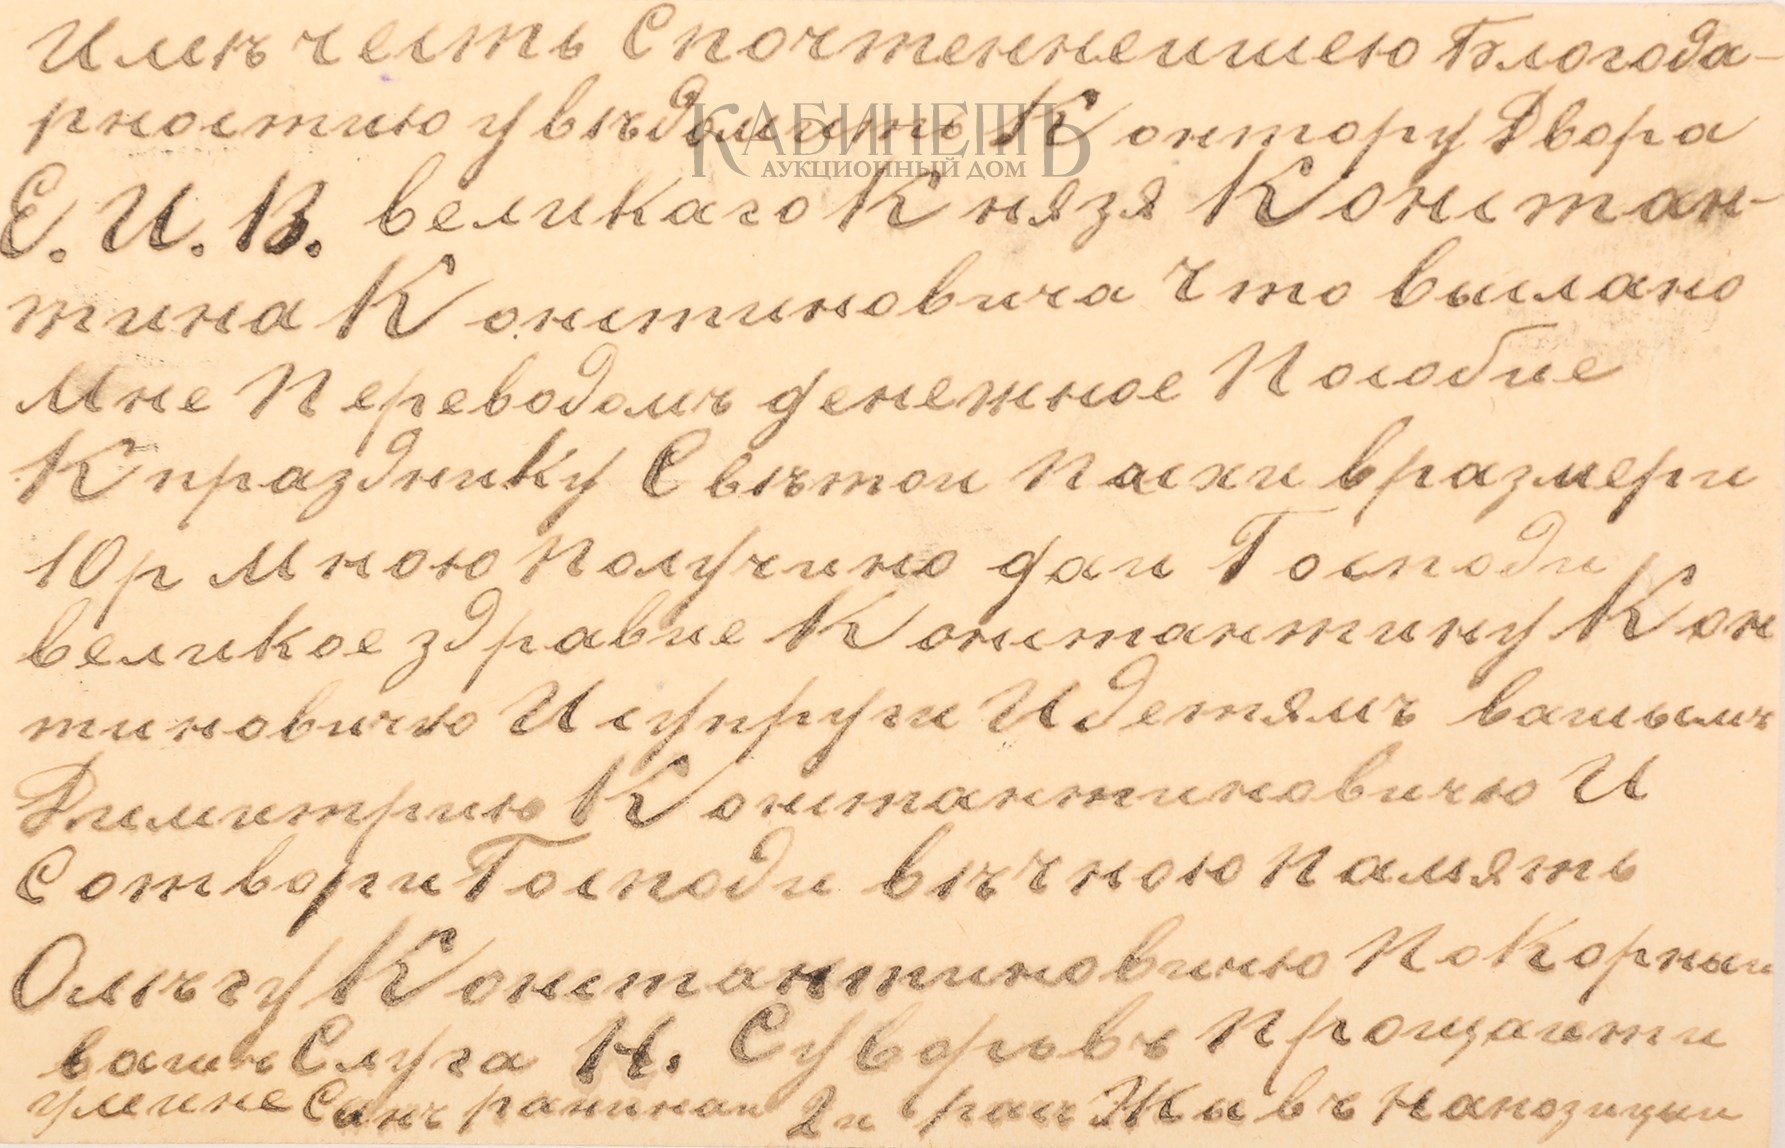 Имѣ честь Спочтеннеишею Благода-
рностию увѣдомить Контору Двора
КАБИНЕТЪ
АУКЦИОННЫЙ ДОМ
Е. И. В. великаго Князя Констан-
тина Констиновича Что выслано
Мне Переводомъ денежное Пособие
К празднику Свѣтои Пасхи вразмери
10 р Мною Получино даи Господи
великое здравие Константину Кон
тиновичю И супруги И детямъ вашымъ
Димитрию Константиновичю И
Сотвори Господи вѣчною Память
Константиновичю Покорныи
вашъ Слуга Н. Суворовъ Прощаити
2и разъ Живъ Напозицыи